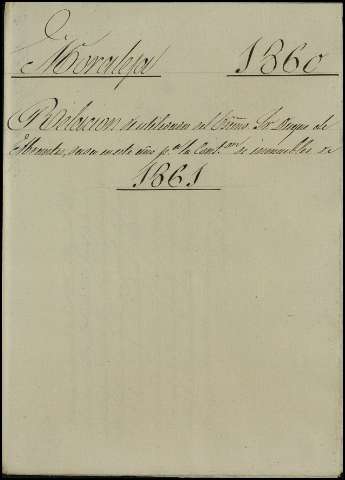 Moraleja 1860
Relacion de utilidades del Excmo Sr Duque de
Abrantes, dada en este año p.ª la Cont.on de inmuebles de
1861